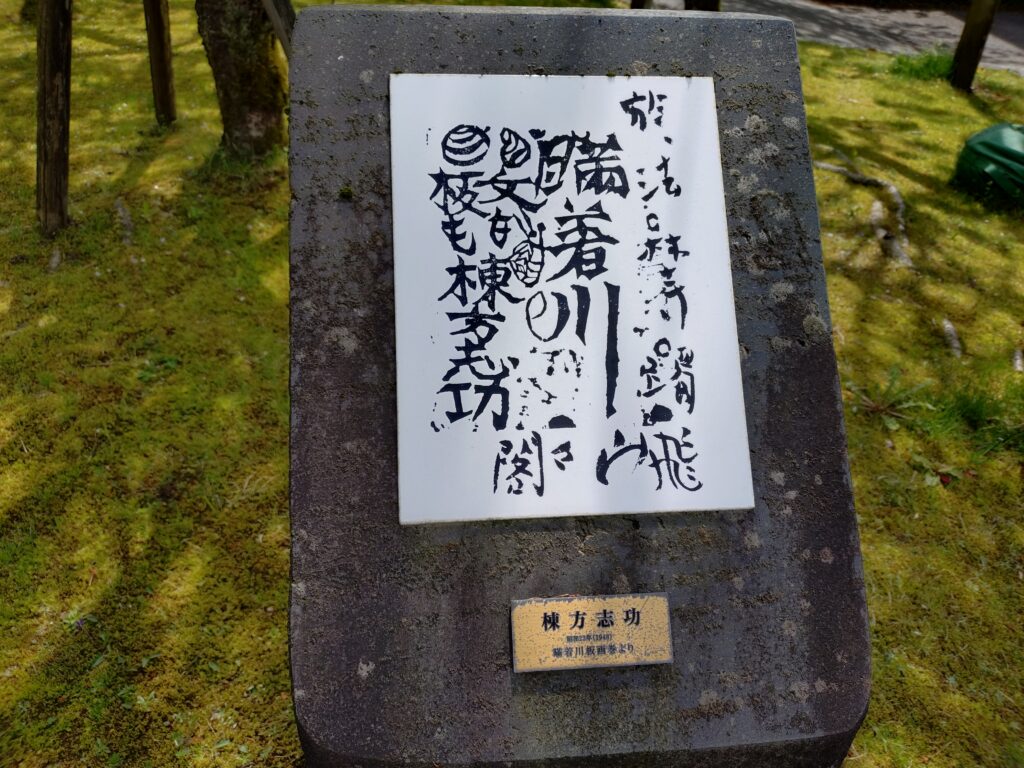 於、法林寺
瞞着川
文も
板も棟方志功
棟方志功
昭和23年(1948)
瞞着川板画巻より